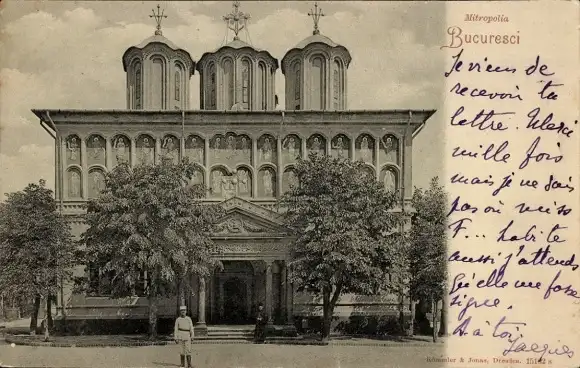 Mitropolia
Bucuresci
Je viens de
recevoir ta
lettre. Merci
mille fois
mais je ne sais
pas où miss
F... habite
aussi j'attends
qu'elle me fasse
signe.
A toi
Jacques
Römmler & Jonas, Dresden. 15142 s